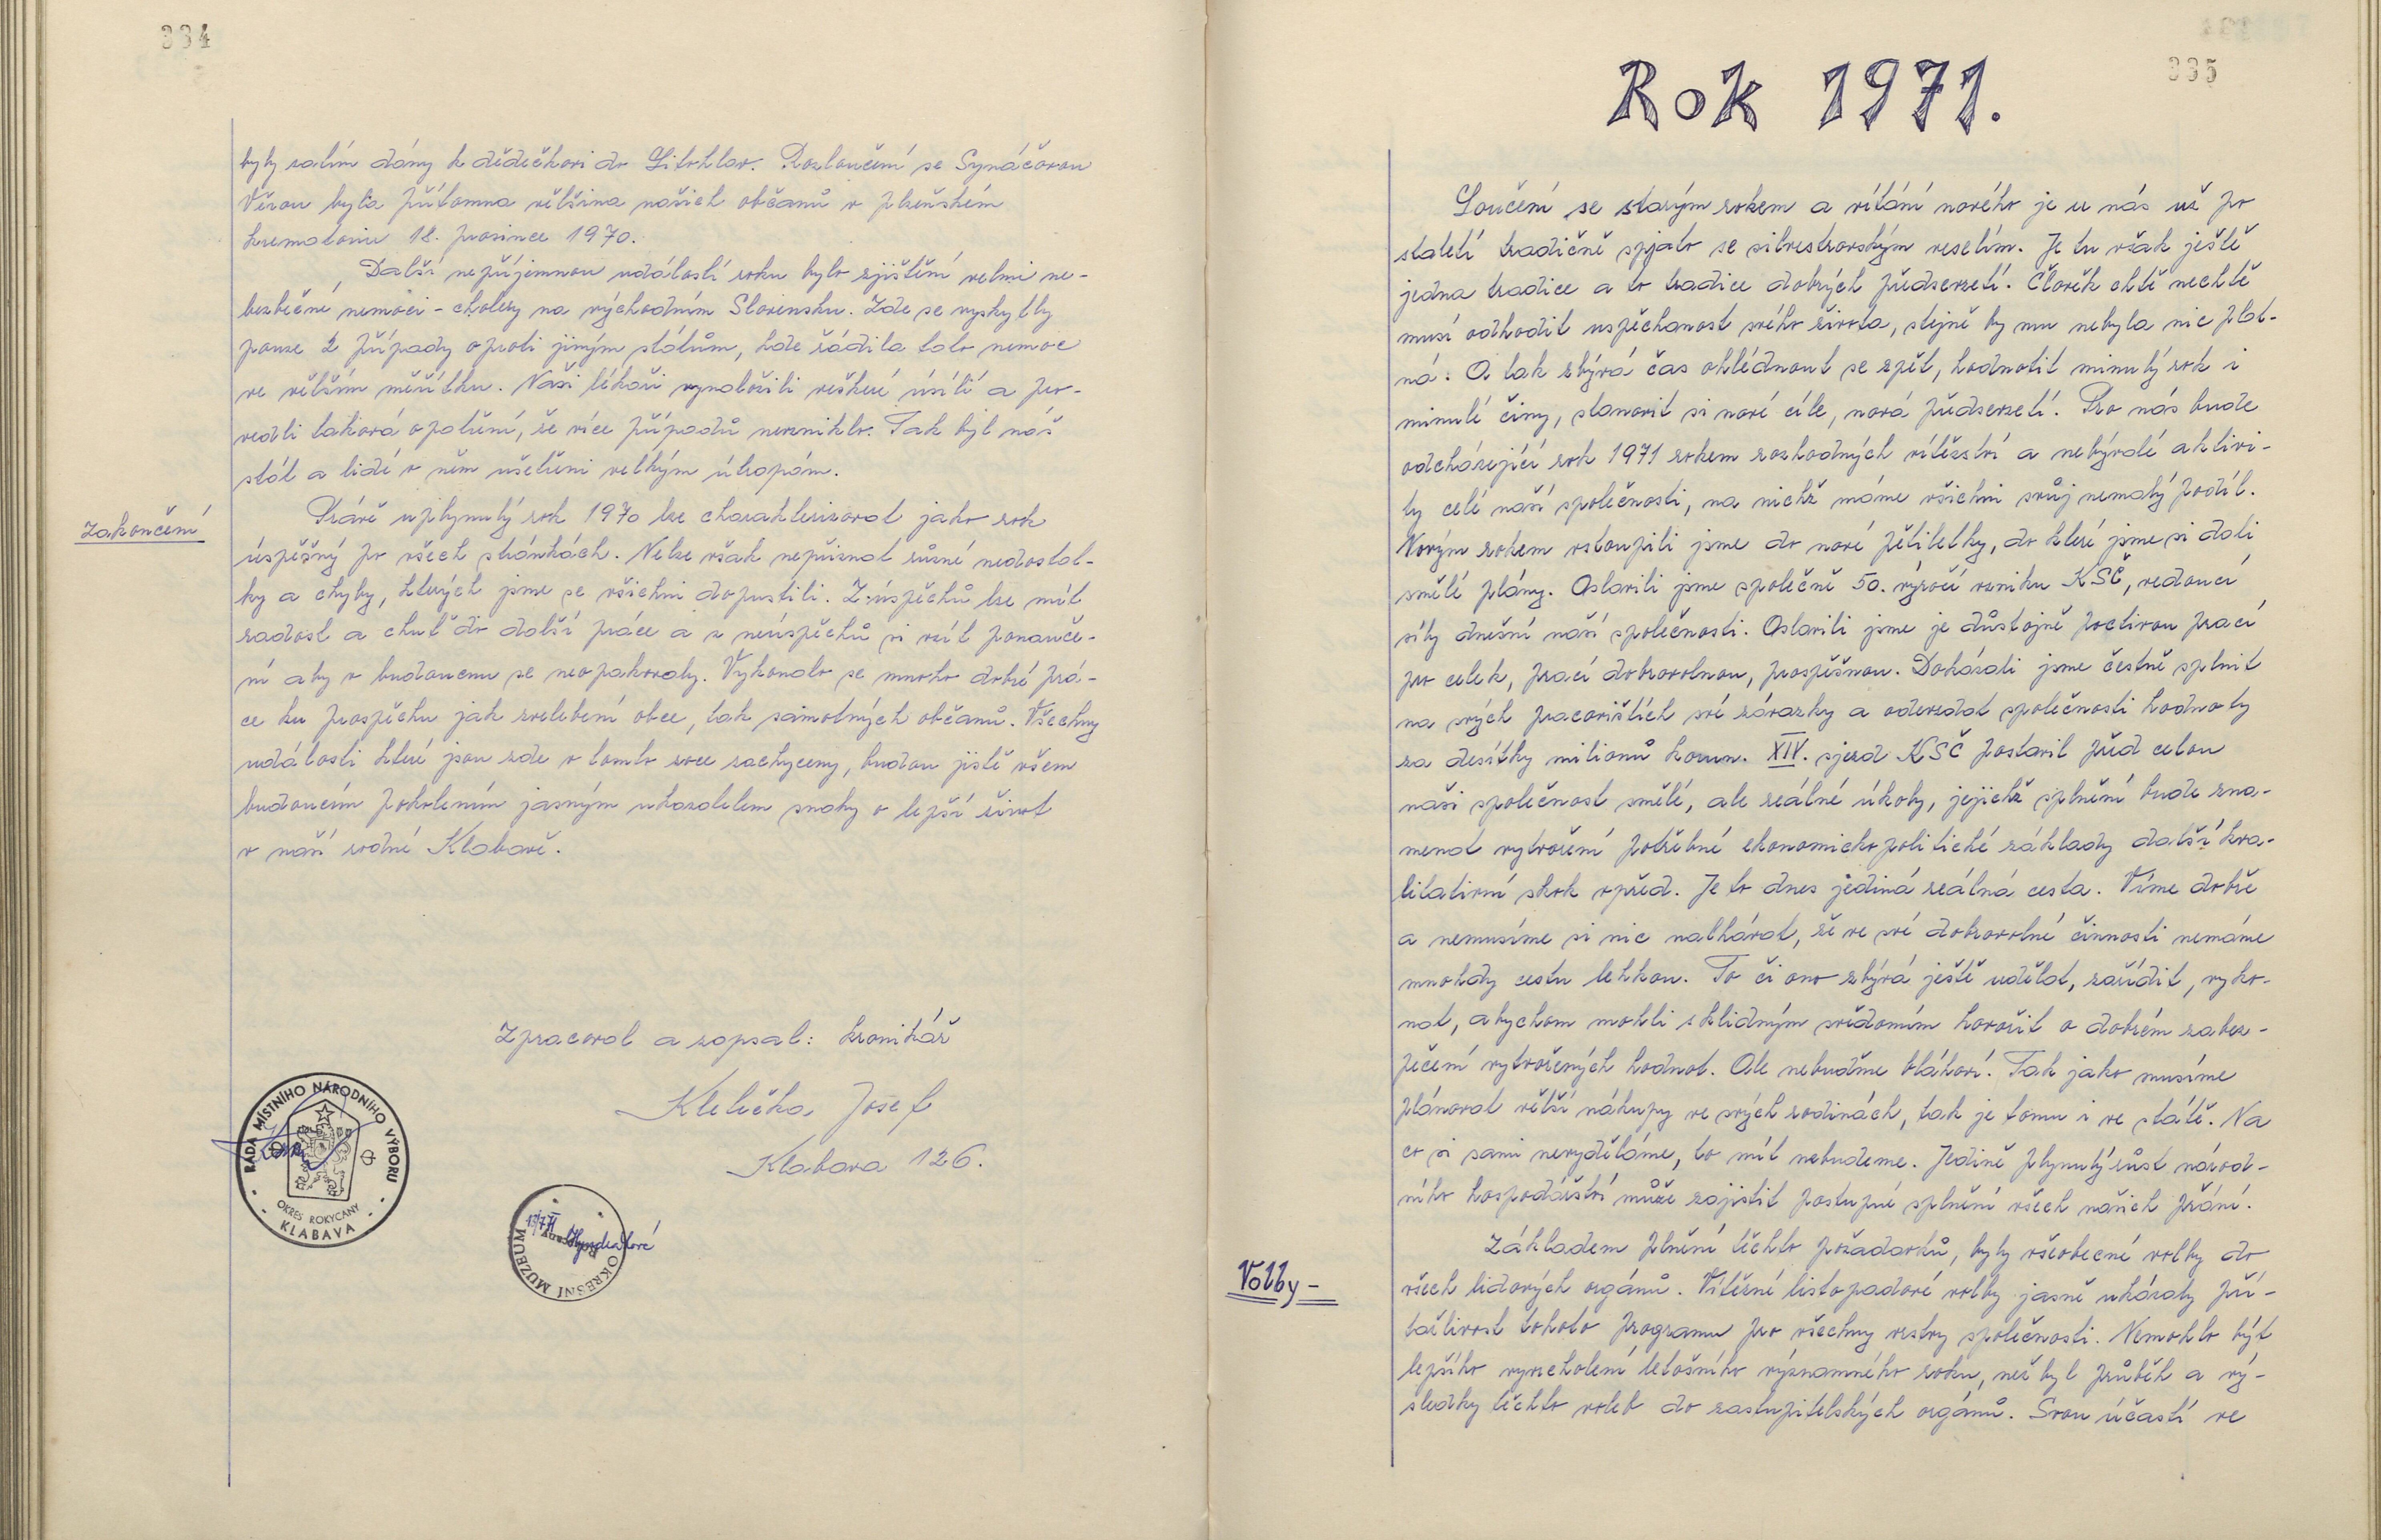 334
byly zatím dány k dědečkovi do Litohlav. Rozloučení se Synáčovou
Věrou byla přítomna většina našich občanů v plzeňském
krematoriu 18. prosince 1970.
Další nepříjemnou událostí roku bylo zjištění velmi ne-
bezbečné nemoci - cholery na východním Slovensku. Zde se vyskytly
pouze 2 případy oproti jiným státům, kde řádila tato nemoc
ve větším měřítku. Naši lékaři vynaložili veškeré úsílí a pro-
vedli taková opatření, že více případů nevzniklo. Tak byl náš
stát a lidé v něm ušetřeni velkým útrapám.
Zakončení
Právě uplynulý rok 1970 lze charakterizovat jako rok
úspěšný po všech stránkách. Nelze však nepřiznat různé nedostat-
ky a chyby, kterých jsme se všichni dopustili. Z úspěchů lze mít
radost a chuť do další práce a z neúspěchů si vzít ponauče-
ní aby v budoucnu se neopakovaly. Vykonalo se mnoho dobré prá-
ce ku prospěchu jak zvelebení obce, tak samotných občanů. Všechny
události které jsou zde v tomto roce zachyceny, budou jistě všem
budoucím pokolením jasným ukazatelem snahy o lepší život
v naší rodné Klabavě.
Zpracoval a zapsal: kronikář
Kletečka Josef
Klabava 126.
RADA MÍSTNÍHO NÁRODNÍHO VÝBORU
OKRES ROKYCANY
- KLABAVA -
OKRESNÍ MUZEUM
335
Rok 1971.
Loučení se starým rokem a vítání nového je u nás už po
staletí tradičně spjato se silvestrovským veselím. Je tu však ještě
jedna tradice a to tradice dobrých předsevzetí. Člověk chtě nechtě
musí odhodit uspěchanost svého života, stejně by mu nebyla nic plat-
ná. A tak zbývá čas ohlédnout se zpět, hodnotit minulý rok i
minulé činy, stanovit si nové cíle, nová předsevzetí. Pro nás bude
odcházející rok 1971 rokem rozhodných vítězství a nebývalé aktivi-
ty celé naší společnosti, na nichž máme všichni svůj nemalý podíl.
Novým rokem vstoupili jsme do nové pětiletky, do které jsme si dali
smělé plány. Oslavili jsme společně 50. výročí vzniku KSČ, vedoucí
síly dnešní naší společnosti. Oslavili jsme je důstojně poctivou prací
pro celek, prací dobrovolnou, prospěšnou. Dokázali jsme čestně splnit
na svých pracovištích své závazky a odevzdat společnosti hodnoty
za desítky milionů korun. XIV. sjezd KSČ postavil před celou
naši společnost smělé, ale reálné úkoly, jejichž splnění bude zna-
menat vytvoření potřebné ekonomicko politické základy další kva-
litativní skok vpřed. Je to dnes jediná reálná cesta. Víme dobře
a nemusíme si nic nalhávat, že ve své dobrovolné činnosti nemáme
mnohdy cestu lehkou. To či ono zbývá ještě udělat, zařídit, vyko-
nat, abychom mohli s klidným svědomím hovořit o dobrém zabez-
pečení vytvořených hodnot. Ale nebuďme bláhoví. Tak jako musíme
plánovat větší nákupy ve svých rodinách, tak je tomu i ve státě. Na
co si sami nevyděláme, to mít nebudeme. Jedině plynulý růst národ-
ního hospodářství může zajistit postupné splnění všech našich přání.
Volby -
Základem plnění těchto požadavků, byly všeobecné volby do
všech lidových orgánů. Vítězné listopadové volby jasně ukázaly při-
tažlivost tohoto programu pro všechny vrstvy společnosti. Nemohlo být
lepšího vyvrcholení letošního významného roku, než byl průběh a vý-
sledky těchto voleb do zastupitelských orgánů. Svou účastí ve